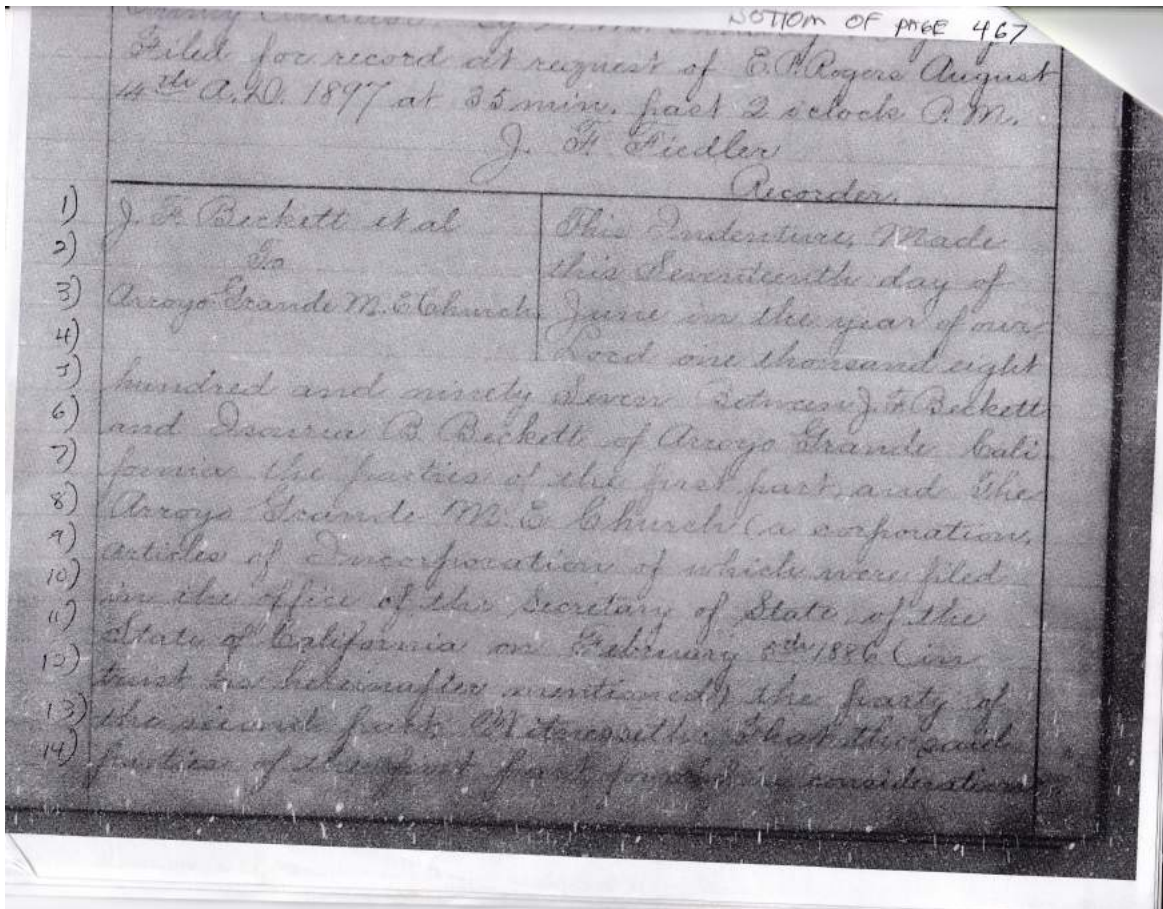 BOTTOM OF PAGE 467
Filed for record at request of E.P. Rogers August
4th A.D. 1897 at 35 min. past 2 oclock P.M.
J. F. Fiedler
Recorder.
1) J. F. Beckett et al This Indenture, Made
2) To this Seventeenth day of
3) Arroyo Grande M. E. Church June in the year of our
4) Lord one thousand eight
5) hundred and ninety Seven Between J. F. Beckett
6) and Isauria B. Beckett of Arroyo Grande Cali
7) fornia the parties of the first part, and The
8) Arroyo Grande M. E. Church (a corporation,
9) articles of Incorporation of which were filed
10) in the office of the Secretary of State of the
11) State of California on February 5th 1886 (in
12) trust as hereinafter mentioned) the party of
13) the second part. Witnesseth: That the said
14) parties of the first part for in consideration